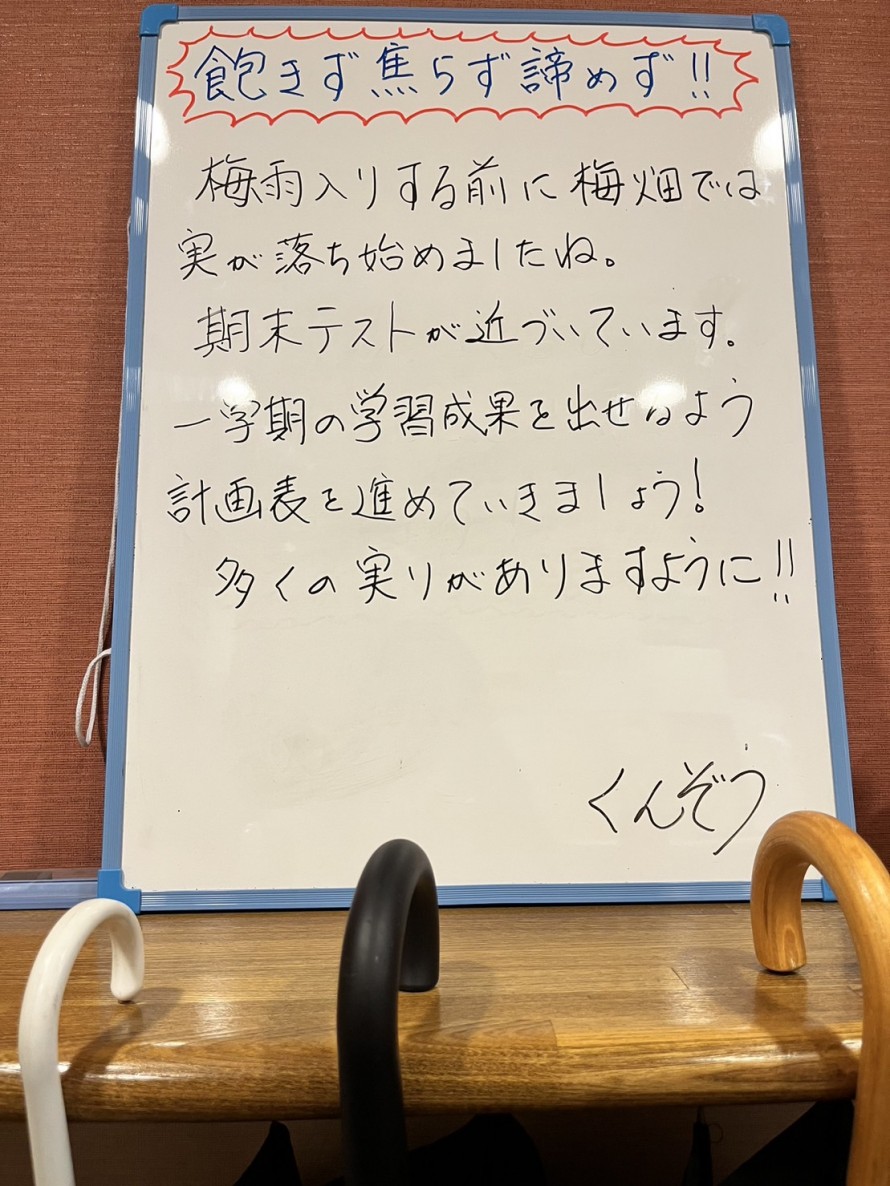 飽きず焦らず諦めず!!
梅雨入りする前に梅畑では
実が落ち始めましたね。
期末テストが近づいています。
一学期の学習成果を出せるよう
計画表を進めていきましょう!
多くの実りがありますように!!
くんぞう